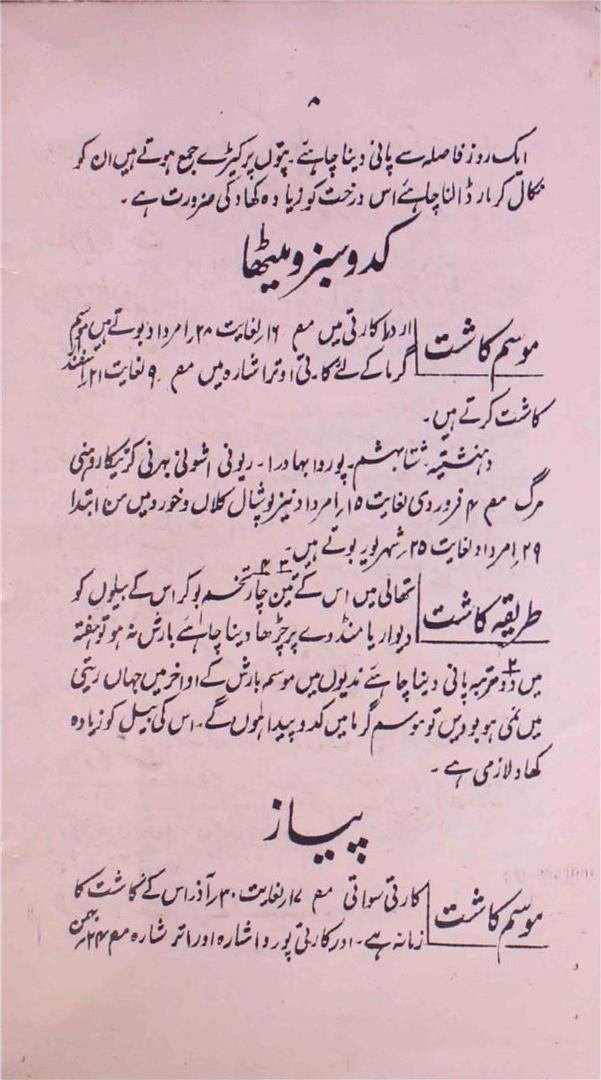 ۸
ایک روز فاصلہ سے پانی دینا چاہئے۔ پتوں پر کیڑے جمع ہوتے ہیں ان کو
نکال کر مار ڈالنا چاہئے اس درخت کو زیادہ کھاد کی ضرورت ہے۔
کدو سبز و میٹھا
موسم کاشت اردط کارتی میں مع ۱۶ لغایت ۲۸ امرداد بوتے ہیں موسم
گرما کے لئے کارتی اوترا شارہ میں مع ۹ لغایت ۲۱ اسفندار
کاشت کرتے ہیں۔
دہنشتیہ۔ شتابہشم۔ پوروا بہادرا۔ ریونی اشونی بہرنی کرتیکا روہنی
مرگ مع ۴ فروردی لغایت ۱۵ امرداد نیز پوشپال کلاں و خورد میں من ابتدا
۲۹ امرداد لغایت ۲۵ شہریور بوتے ہیں۔
طریقہ کاشت تھالی میں اس کے تین ۳ چار ۴ تخم بو کر اس کے بیلوں کو
دیوار یا منڈوے پر چڑھا دینا چاہئے بارش نہ ہو تو ہفتہ
میں دو ۲ مرتبہ پانی دینا چاہئے ندیوں میں موسم بارش کے اواخر میں جہاں ریتی
میں نمی ہو بودیں تو موسم گرما میں کدو پیدا ہوں گے۔ اس کی بیل کو زیادہ
کھاد لازمی ہے۔
پیاز
موسم کاشت کارتی سواتی مع ۱۷ لغایت ۳۰ آذر اس کے کاشت کا
زمانہ ہے۔ اور کارتی پوروا شارہ اور اتر شارہ مع ۲۴ بہمن